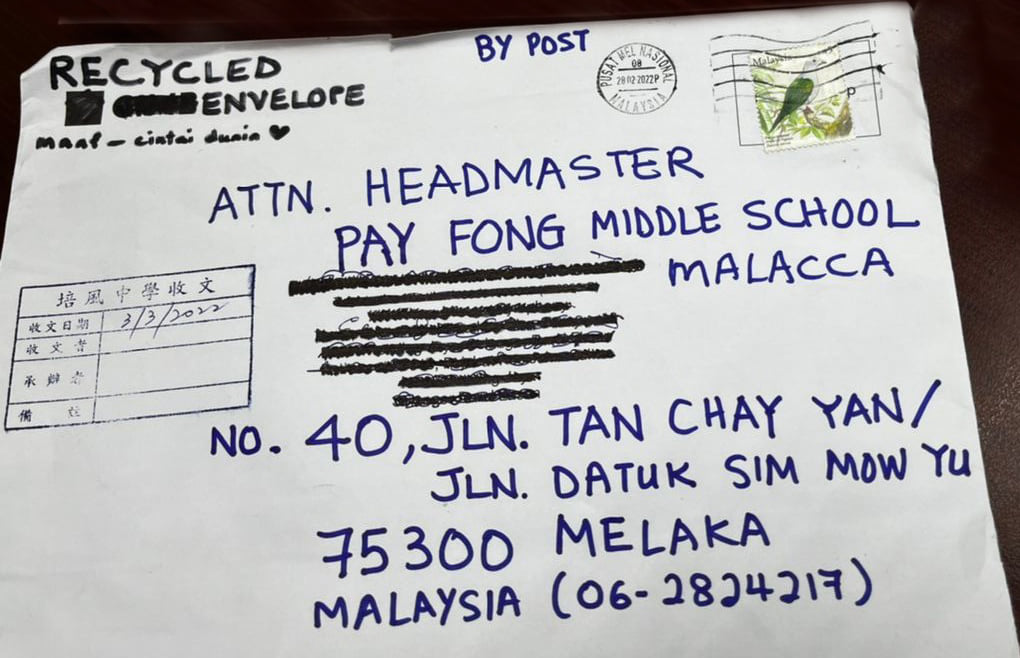 BY POST
RECYCLED
ENVELOPE
maaf - cintai dunia ♥
PUSAT MEL NASIONAL
08
28 02 2022P
MALAYSIA
Malaysia
P
ATTN. HEADMASTER
PAY FONG MIDDLE SCHOOL
MALACCA
培風中學收文
收文日期 3/3/2022
收文者
承辦者
備註
NO. 40, JLN. TAN CHAY YAN/
JLN. DATUK SIM MOW YU
75300 MELAKA
MALAYSIA (06-2824217)